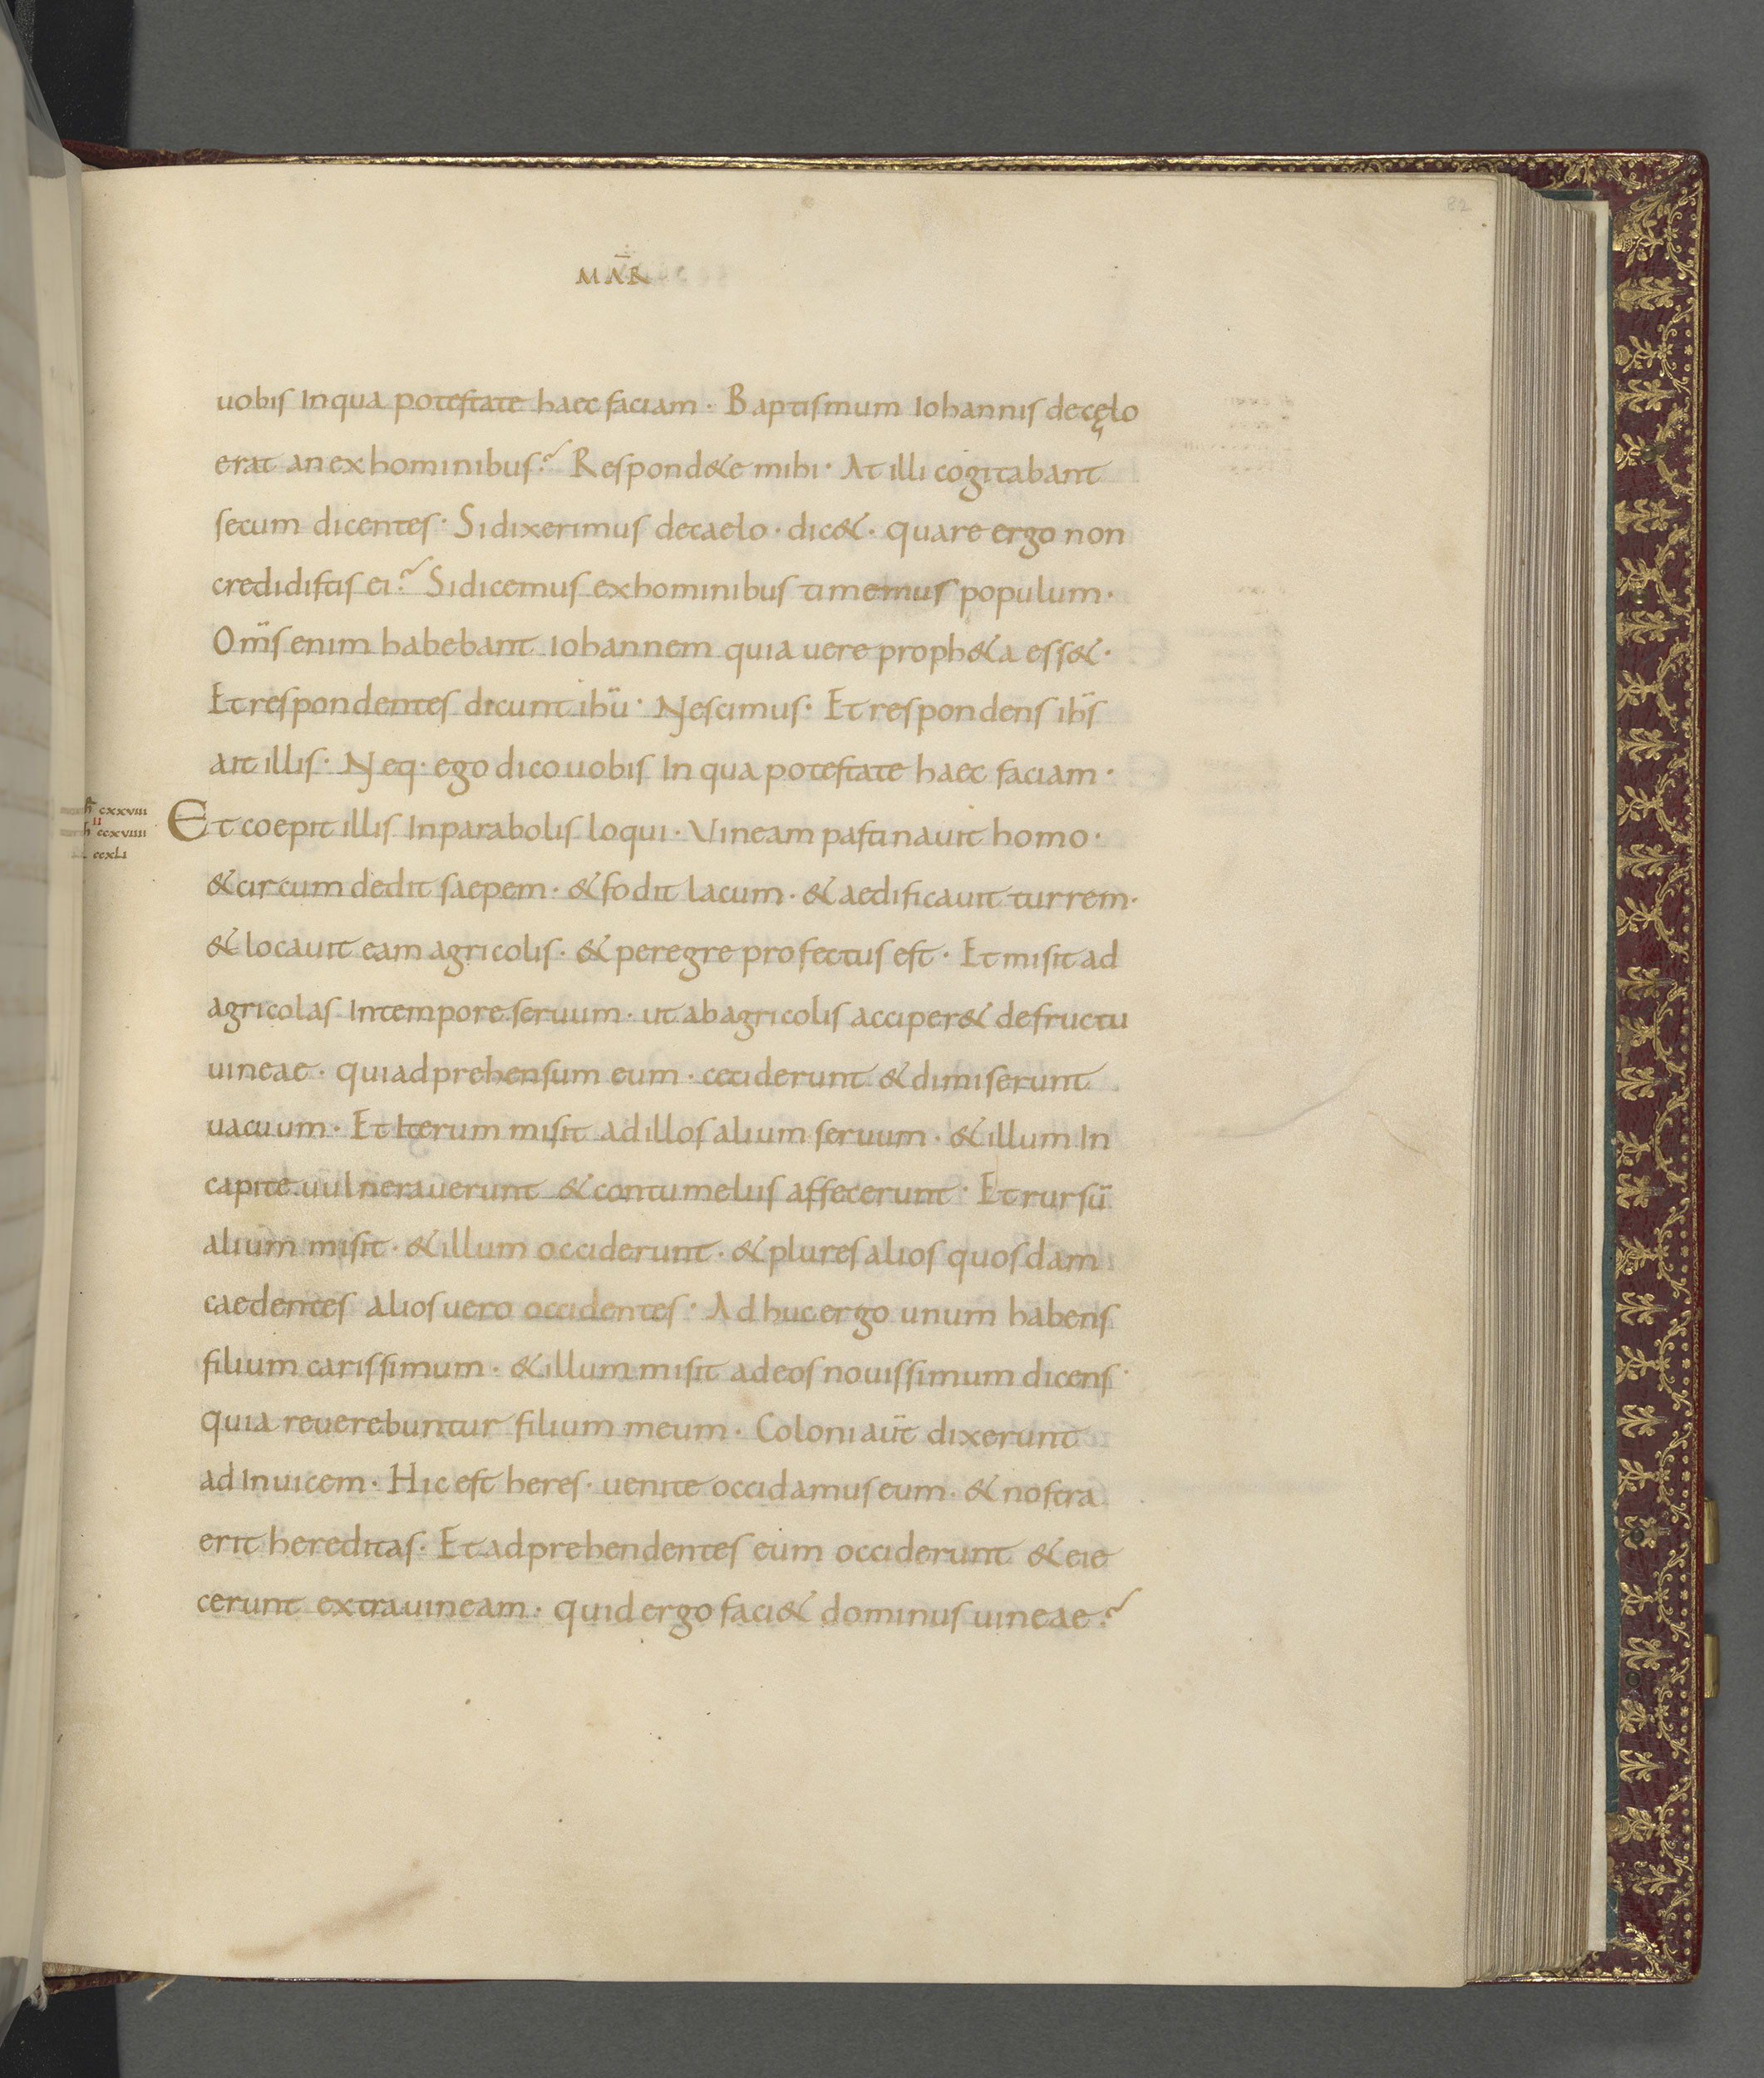 82
MAR̄
uobis In qua potestate haec faciam · Baptismum Iohannis de cęlo
erat an ex hominibus? Respond&e mihi · At illi cogitabant
secum dicentes · Si dixerimus de caelo · dic& · quare ergo non
credidistis ei? Si dicemus ex hominibus timemus populum ·
Om̄s enim habebant iohannem quia uere proph&a ess& ·
Et respondentes dicunt ihū · Nescimus · Et respondens ihs̄
ait illis · Neq· ego dico uobis In qua potestate haec faciam ·
cxxviii
II
ccxviiii
ccxli
Et coepit illis In parabolis loqui · Vineam pastinauit homo ·
& circumdedit saepem · & fodit lacum · & aedificauit turrem ·
& locauit eam agricolis · & peregre profectus est · Et misit ad
agricolas In tempore seruum · ut ab agricolis acciper& de fructu
uineae · qui adprehensum eum · ceciderunt & dimiserunt
uacuum · Et Iterum misit ad illos alium seruum · & illum In
capite uulnerauerunt & contumeliis affecerunt · Et rursū
alium misit · & illum occiderunt · & plures alios quosdam
caedentes alios uero occidentes · Adhuc ergo unum habens
filium carissimum · & illum misit ad eos nouissimum dicens ·
quia reuerebuntur filium meum · Coloni aūt dixerunt
ad Inuicem · Hic est heres · uenite occidamus eum · & nostra
erit hereditas · Et adprehendentes eum occiderunt & eie
cerunt extra uineam · quid ergo faci& dominus uineae?